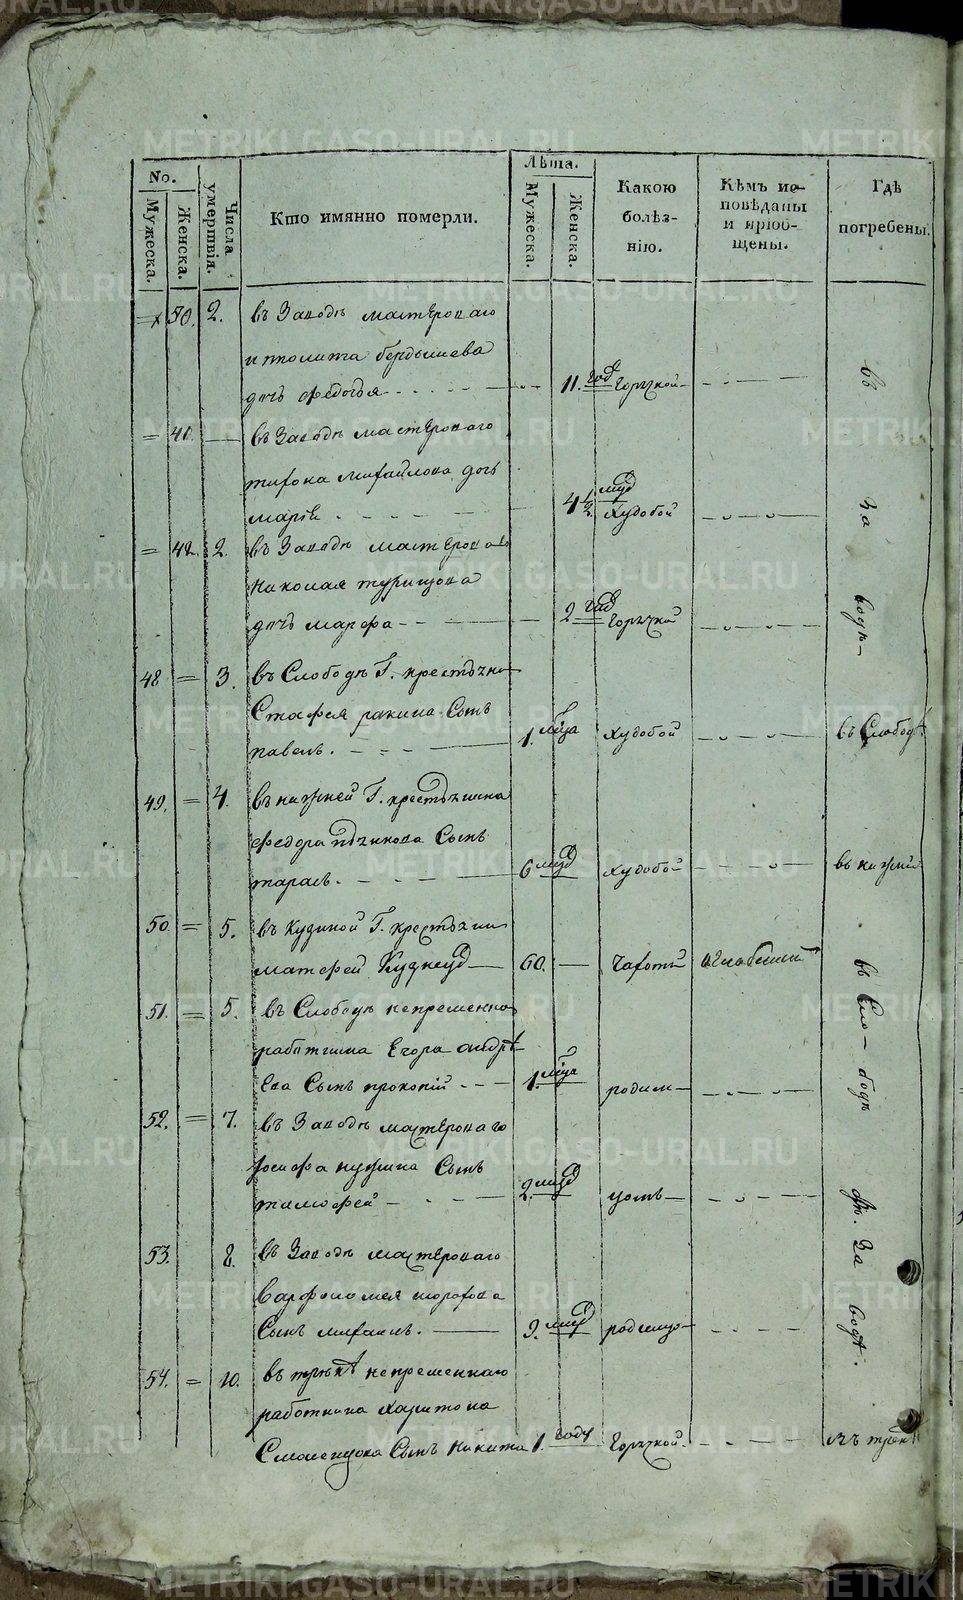 METRIKI.GASO-URAL.RU
No.
Мужеска.
Женска.
Числа умертвія.
Кто имянно померли.
Лѣта.
Мужеска.
Женска.
Какою болѣз-
нію.
Кѣмъ ис-
повѣданы
и пріоб-
щены.
Гдѣ
погребены.
50. 2. въ Заводѣ мастероваго
ипполита бердышева
дочь федосья 11. год горячкой
41. въ Заводѣ мастероваго
тихона михайлова дочь
марія 4 1/2 худобой
42. 2. въ Заводѣ мастероваго
николая
дочь марфа 2 год горячкой
въ
за
водѣ
48 3. въ Слободѣ Г. крестьяни
Сын
павелъ. 1. мца худобой въ Слободѣ
49. 4. въ нижней Г. крестьянина
федора Сынъ
тарасъ. 6 худобой въ нижней
50. 5. въ Кудиной Г. крестьянин
матфей 60. чахоткой
51. 5. въ Слободѣ непременно
работника Егора андрѣ
ева Сынъ прокопій 1. мца родим
въ Сло-
бодѣ
52. 7. въ Заводѣ мастероваго
Сынъ
тимофей 2.
53. 8. въ Заводѣ мастероваго
варфоломея
Сынъ михаилъ. 9. родимцо
За
водѣ.
54. 10. въ непременнаго
работника харитона
Сынъ никита 1. году горячкой.